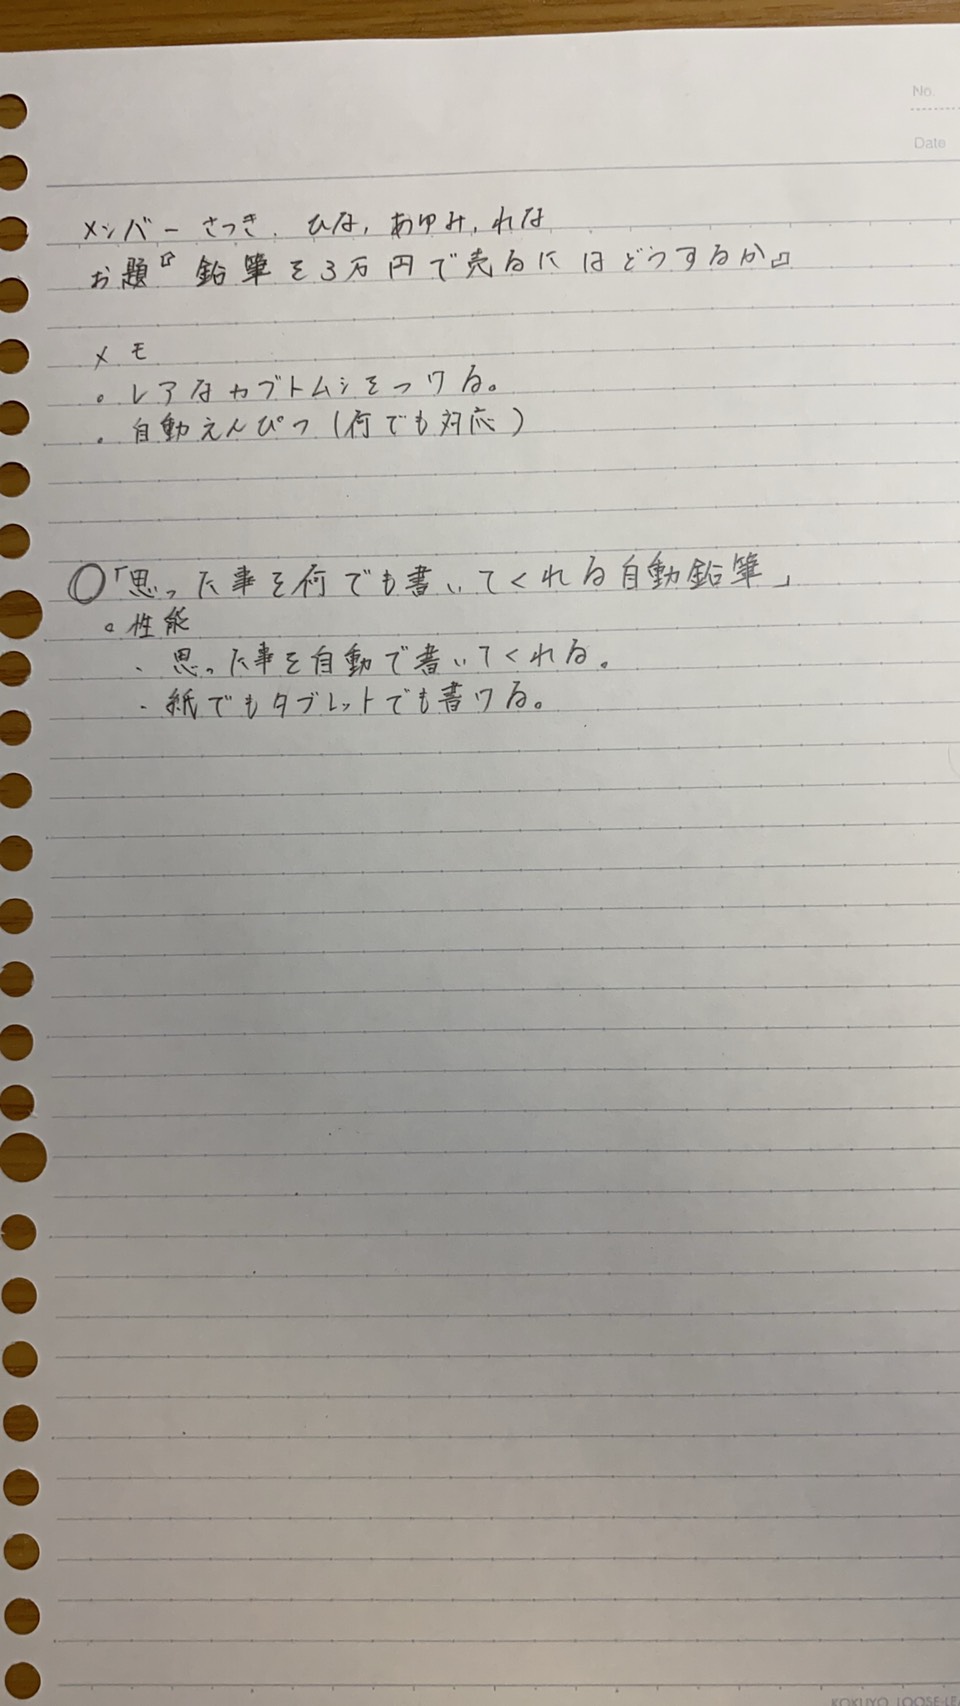 No.
Date
メンバー さつき、ひな，あゆみ，れな
お題『鉛筆を3万円で売るにはどうするか』
メモ
。レアなカブトムシをつける。
・自動えんぴつ（何でも対応）
○「思った事を何でも書いてくれる自動鉛筆」
。性能
・思った事を自動で書いてくれる。
・紙でもタブレットでも書ける。
KOKUYO LOOSE-LE